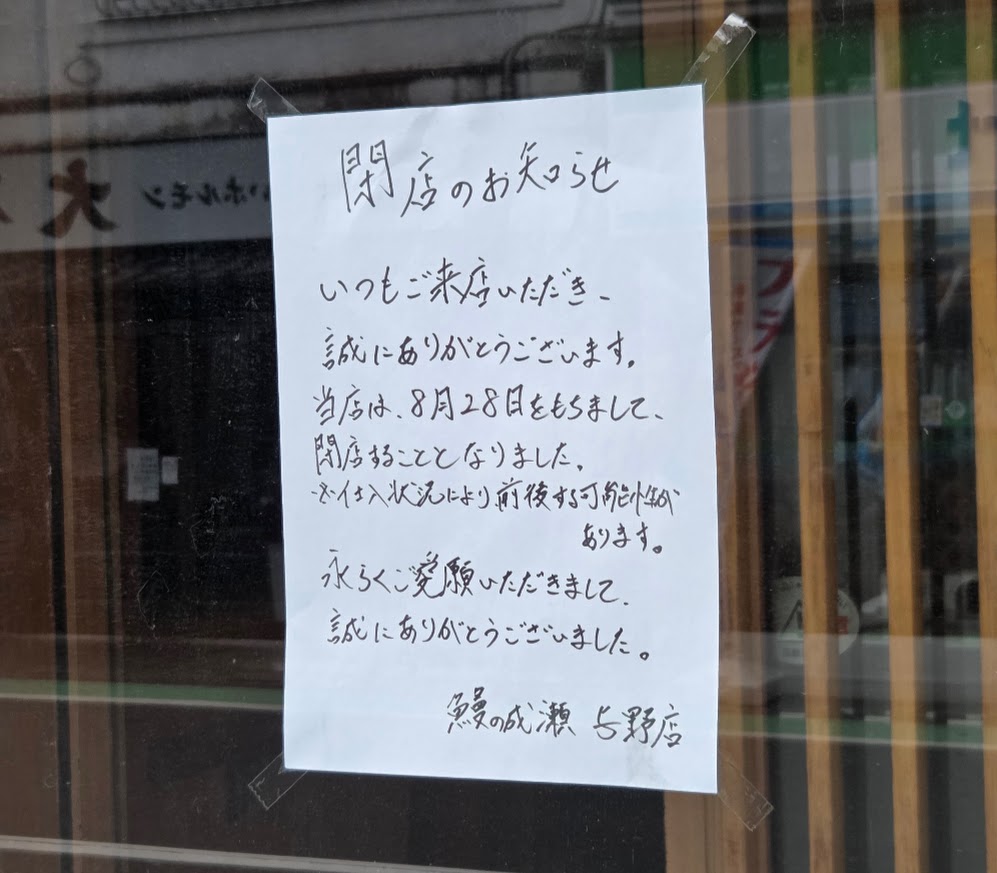 閉店のお知らせ
いつもご来店いただき、
誠にありがとうございます。
当店は、8月28日をもちまして、
閉店することとなりました。
※仕入状況により前後する可能性が
あります。
永らくご愛願いただきまして、
誠にありがとうございました。
鰻の成瀬 与野店
ホルモン